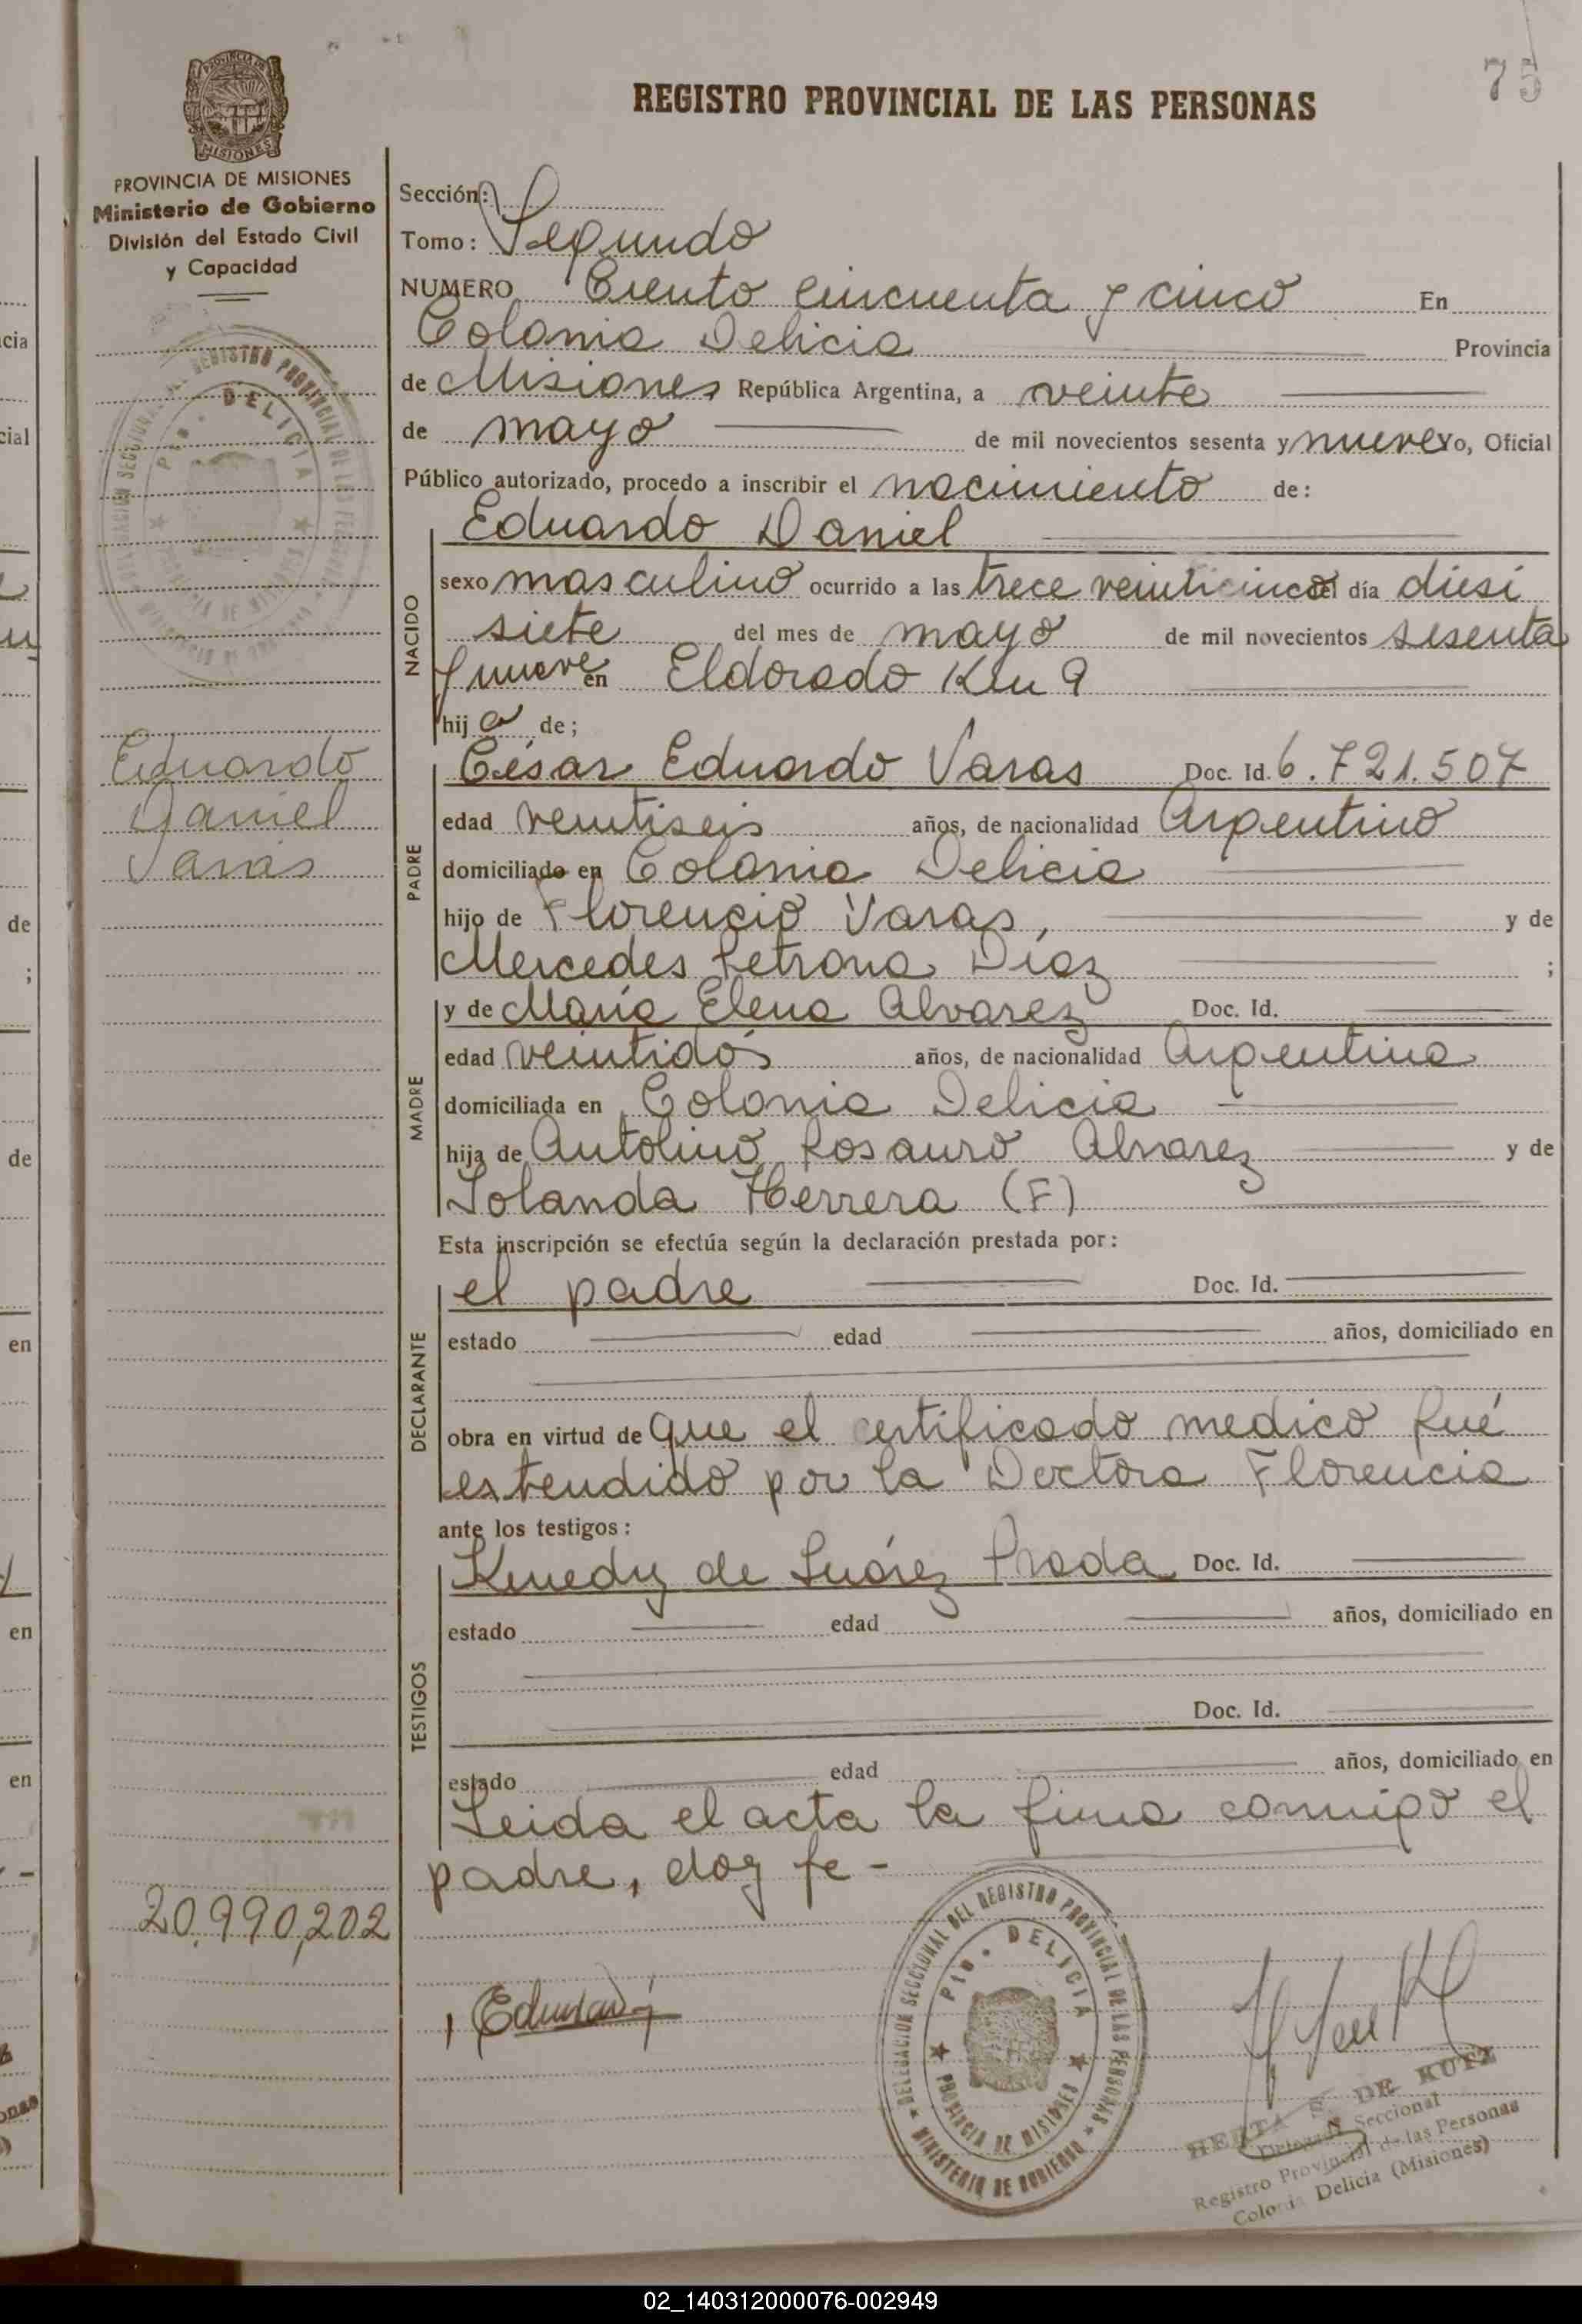 75
REGISTRO PROVINCIAL DE LAS PERSONAS
PROVINCIA DE MISIONES
MISIONES
PROVINCIA DE MISIONES
Ministerio de Gobierno
División del Estado Civil
y Capacidad
Sección:
Tomo: Segundo
NUMERO Ciento cincuenta y cinco En
Colonia Delicia Provincia
de Misiones República Argentina, a veinte
de mayo de mil novecientos sesenta y nueve Yo, Oficial
Público autorizado, procedo a inscribir el nacimiento de:
NACIDO
Eduardo Daniel
sexo masculino ocurrido a las trece veinticinco del día diesi
siete del mes de mayo de mil novecientos sesenta
y nueve en Eldorado Km 9
hij o de;
Eduardo
Daniel
Varas
PADRE
César Eduardo Varas Doc. Id. 6.721.507
edad veintiseis años, de nacionalidad Argentino
domiciliado en Colonia Delicia
hijo de Florencio Varas, y de
Mercedes Petrona Díaz ;
MADRE
y de María Elena Alvarez Doc. Id.
edad veintidós años, de nacionalidad Argentina
domiciliada en Colonia Delicia
hija de Antolino Rosauro Alvarez y de
Iolanda Herrera (F)
Esta inscripción se efectúa según la declaración prestada por:
DECLARANTE
el padre Doc. Id.
estado edad años, domiciliado en
obra en virtud de que el certificado medico fué
extendido por la Doctora Florencia
ante los testigos:
TESTIGOS
Kenedy de Suárez Prada Doc. Id.
estado edad años, domiciliado en
Doc. Id.
estado edad años, domiciliado en
Leida el acta la firma conmigo el
padre, doy fe -
20,990,202
DELEGACION SECCIONAL DEL REGISTRO PROVINCIAL DE LAS PERSONAS
MINISTERIO DE GOBIERNO
Pto. DELICIA
PROVINCIA DE MISIONES
HERTA S. DE KUTZ
Delegada Seccional
Registro Provincial de las Personas
Colonia Delicia (Misiones)
cia
cial
de
;
de
en
en
en
02_140312000076-002949